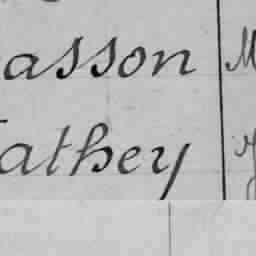 asson M
athey